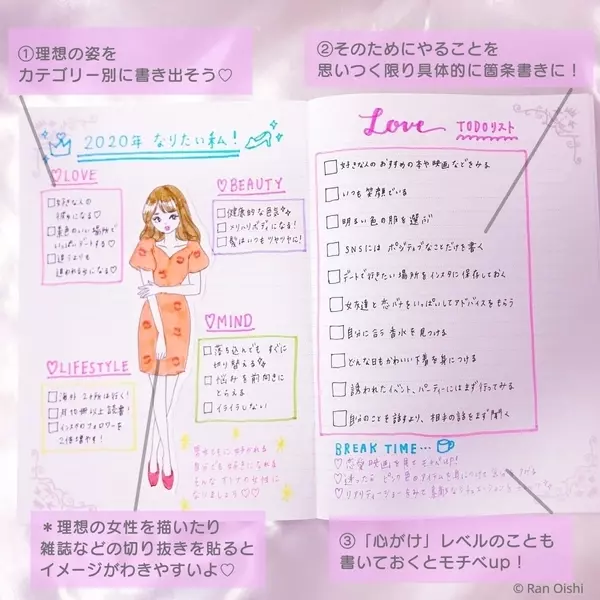 ①理想の姿を
カテゴリー別に書き出そう♡
②そのためにやることを
思いつく限り具体的に箇条書きに！
2020年 なりたい私！
♡LOVE
好きな人の
彼女になる♡
景色のいい場所で
いっぱいデートする♡
追うよりも
追われる女になる♡
♡BEAUTY
健康的な色気
メリハリボディになる！
髪はいつもツヤツヤに！
♡MIND
落ち込んでも すぐに
切り替える
悩みを前向きに
とらえる
イライラしない
♡LIFESTYLE
海外 2ヶ所は行く！
月 冊以上 読書！
インスタのフォロワーを
2倍増やす！
男女ともに好かれる
自分でも好きになれる
そんなすてきな女性に
なりましょう♡♡
Love TODOリスト
好きな人の おすすめの本や映画などをみる
いつも笑顔でいる
明るい色の服を選ぶ
SNSには ポジティブなことだけを書く
デートで行きたい場所をインスタに保存しておく
女友達と恋バナをいっぱいしてアドバイスをもらう
自分に合う香水を見つける
どんな日もかわいい下着を身につける
誘われたイベント、パーティーにはまず行ってみる
自分のことを話すより、相手の話をまず聞く
BREAK TIME…
♡恋愛映画を見てモチベup！
♡迷ったら ピンク色のアイテムを身につけて
♡リアリティーショーをみて
＊理想の女性を描いたり
雑誌などの切り抜きを貼ると
イメージがわきやすいよ♡
③「心がけ」レベルのことも
書いておくとモチベup！
© Ran Oishi